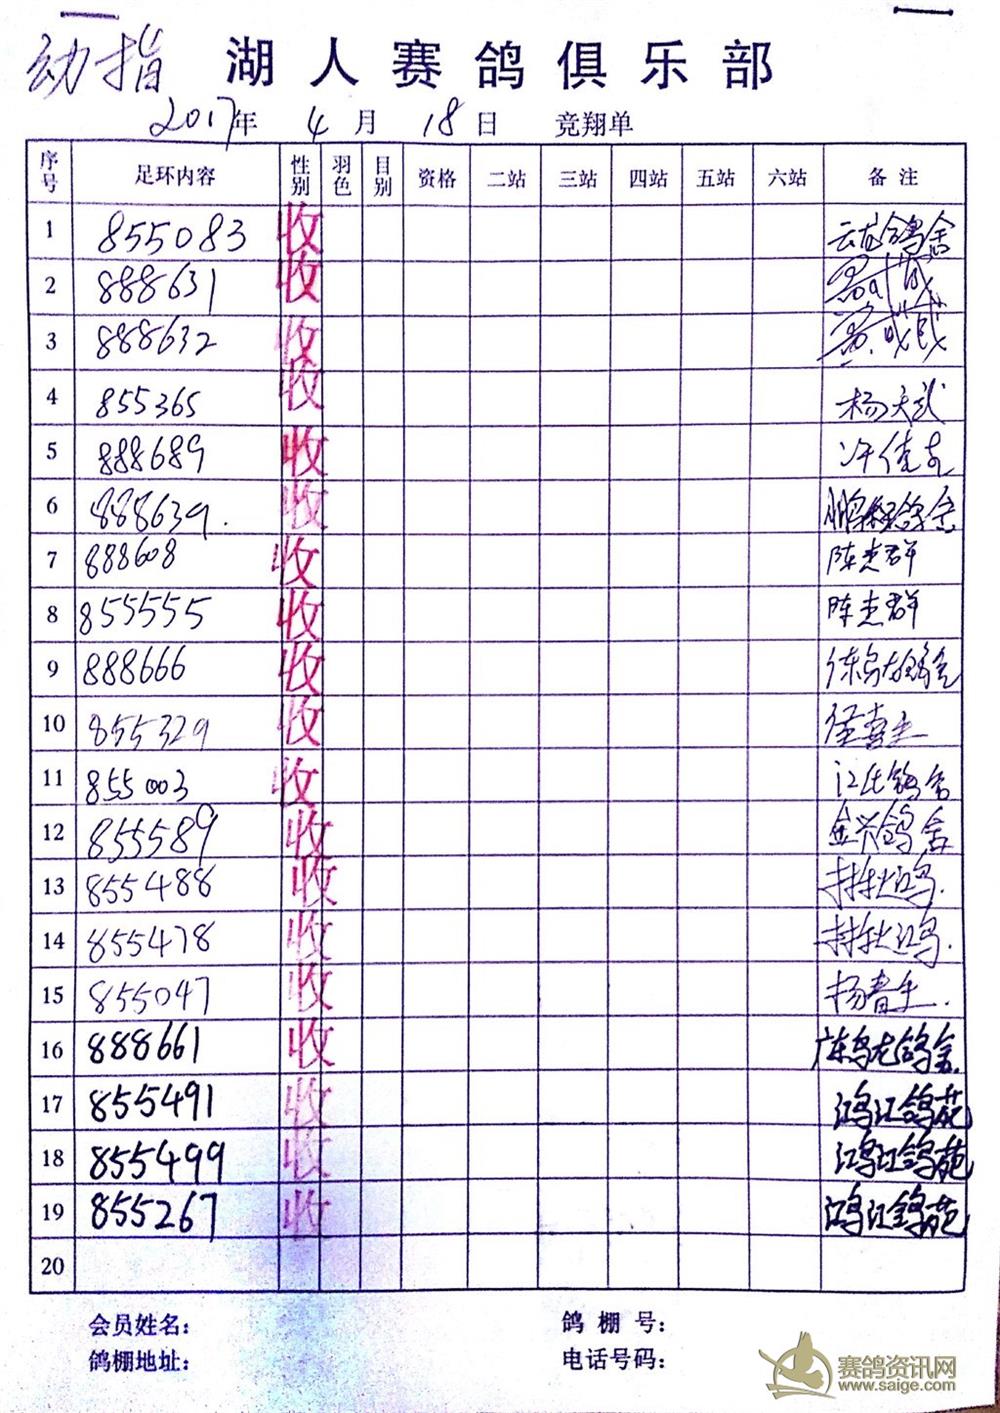 幼指
湖人赛鸽俱乐部
2017年 4月 18日 竞翔单
序号 足环内容 性别 羽色 目别 资格 二站 三站 四站 五站 六站 备注
1 855083 收 云龙鸽舍
2 888631 收
3 888632 收
4 855365 收 杨天武
5 888689 收 许佳
6 888639. 收 鸽舍
7 888608 收 陈志群
8 855555 收 陈志群
9 888666 收
10 855329 收
11 855003 收 江氏鸽舍
12 855589 收 金兴鸽舍
13 855488 收
14 855478 收
15 855047 收 杨春生.
16 888661 收 广东乌龙鸽舍.
17 855491 收 鸿江鸽苑
18 855499 收 鸿江鸽苑
19 855267 收 鸿江鸽苑
20
会员姓名: 鸽棚号:
鸽棚地址: 电话号码:
赛鸽资讯网
www.saige.com